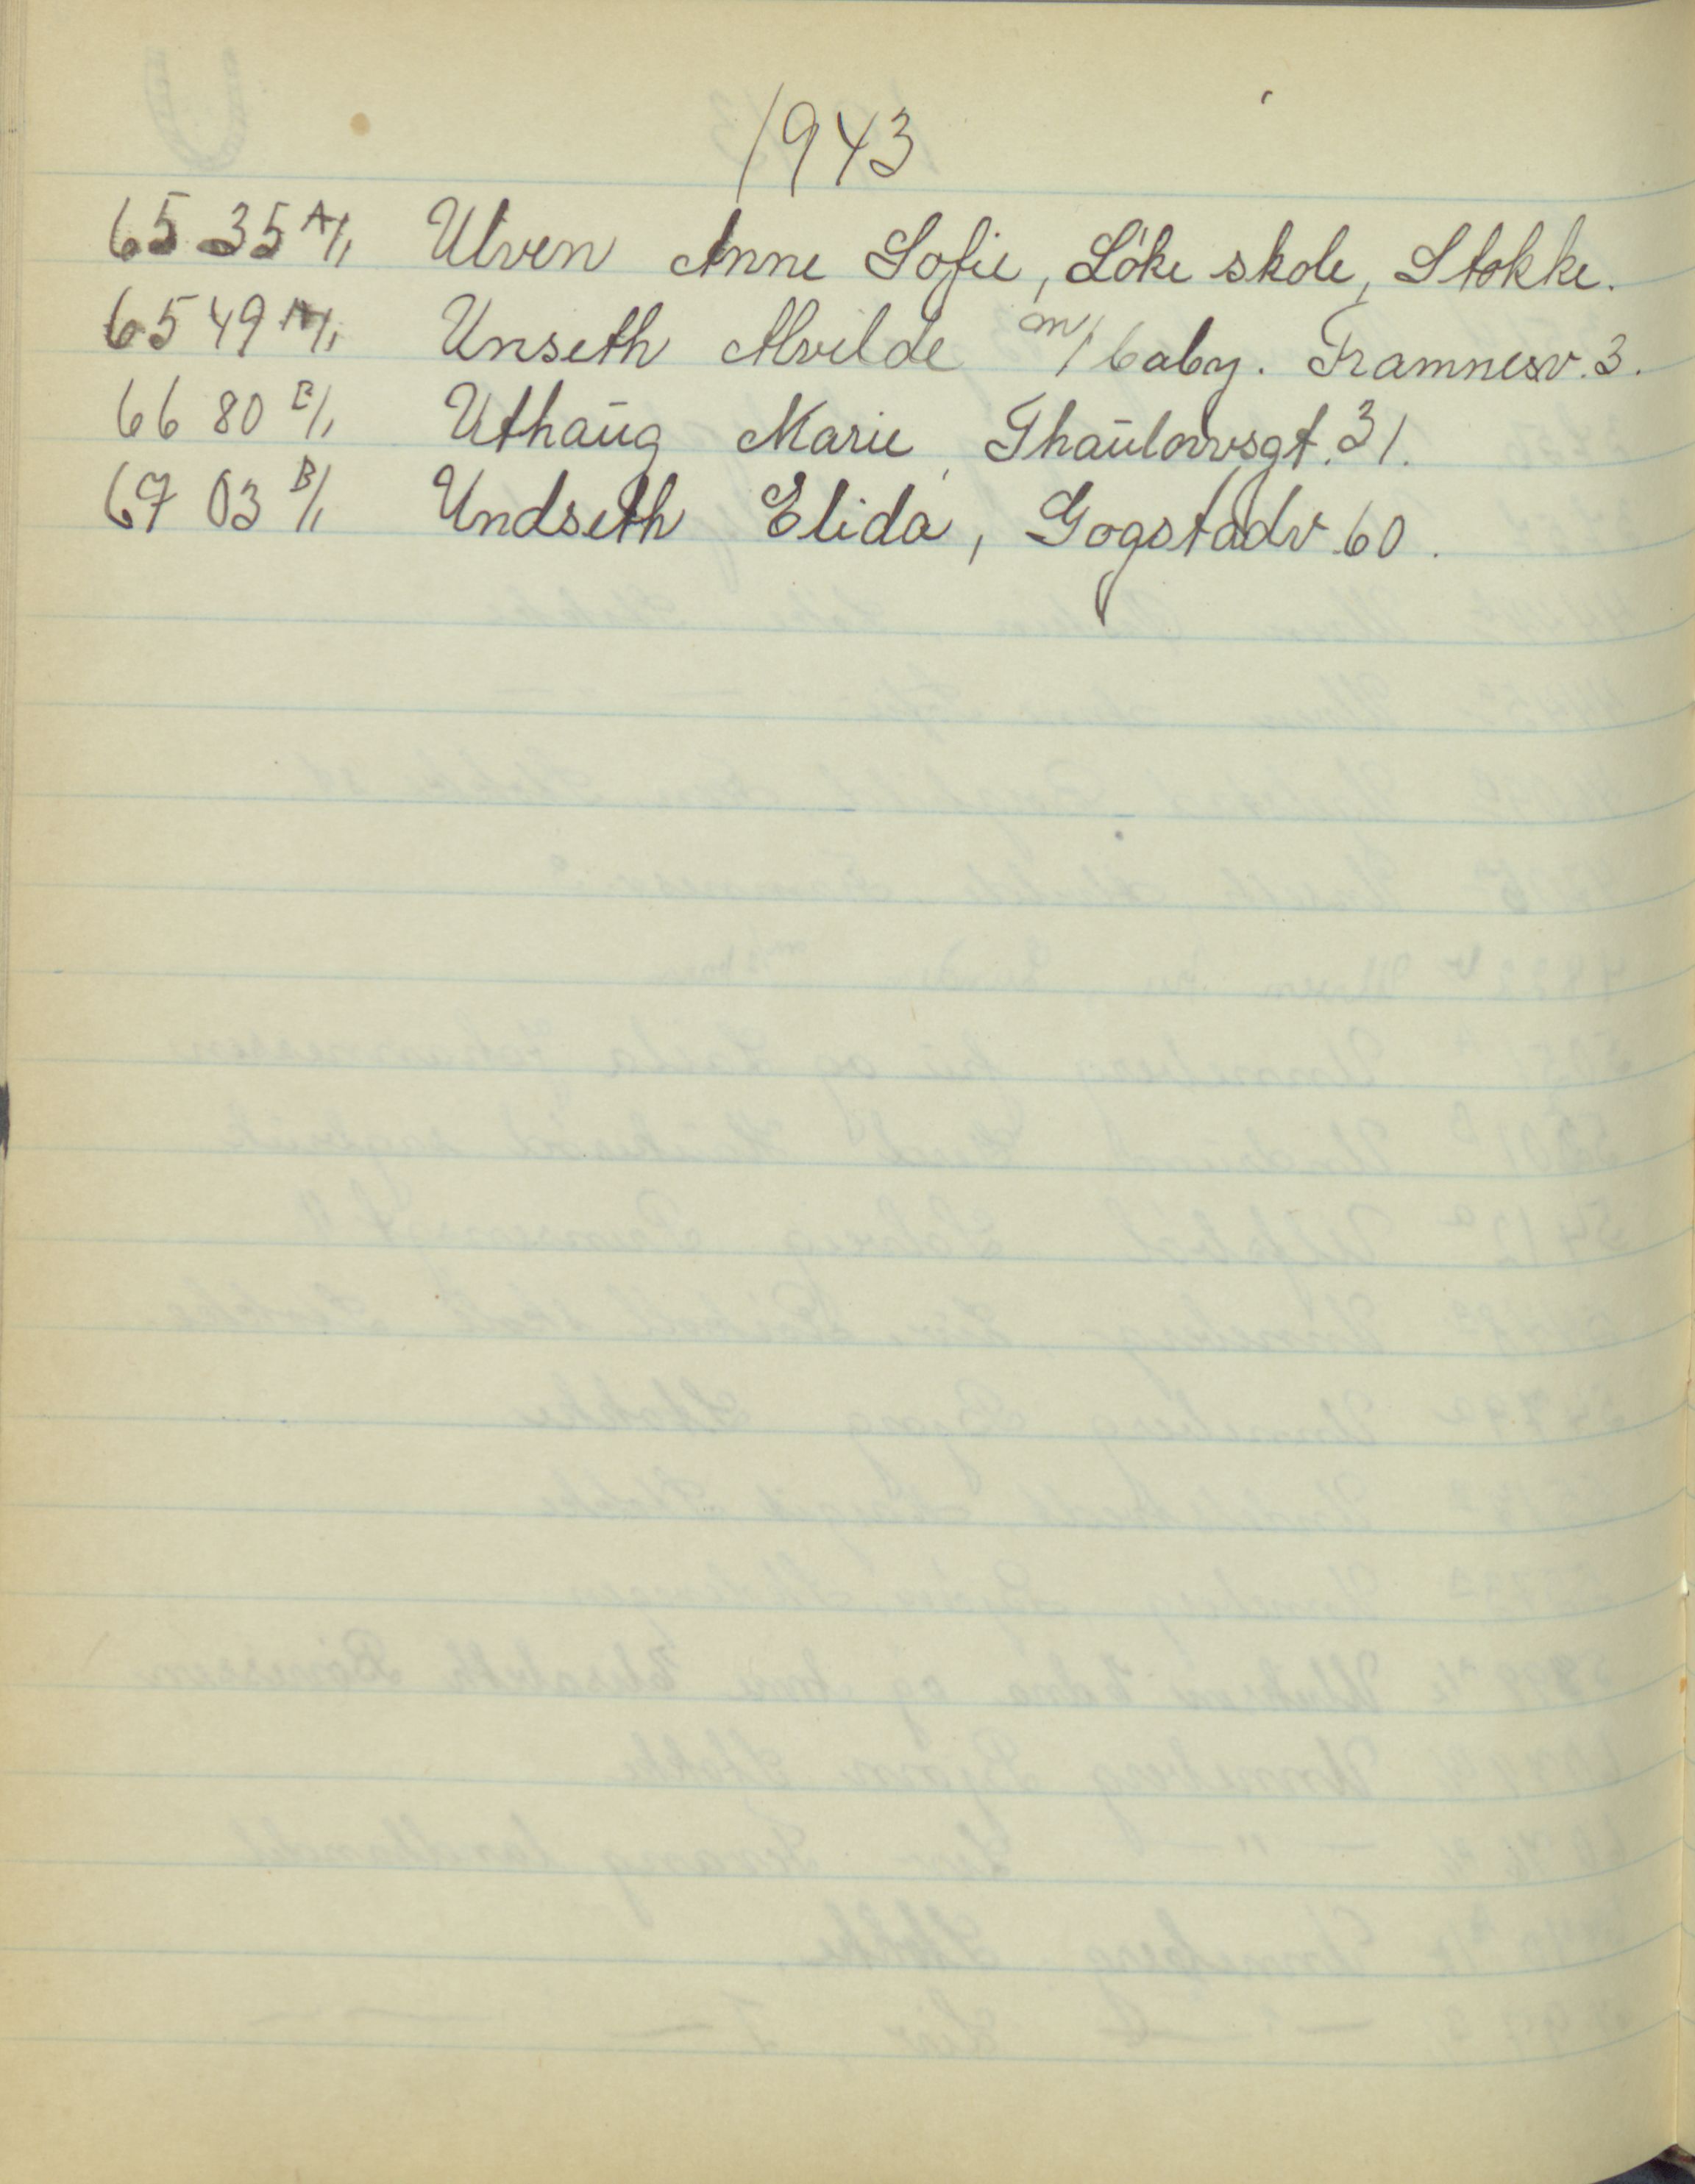 1943
65 35 A/1 Ulven Anne Sofie, Löke skole, Stokke.
65 49 A/1 Unseth Alvilde m/ baby. Framnesv. 3.
66 80 B/1 Uthaŭg Marie, Thaŭlowsgt. 31.
67 03 B/1 Undseth Elida, Gogstadv. 60.